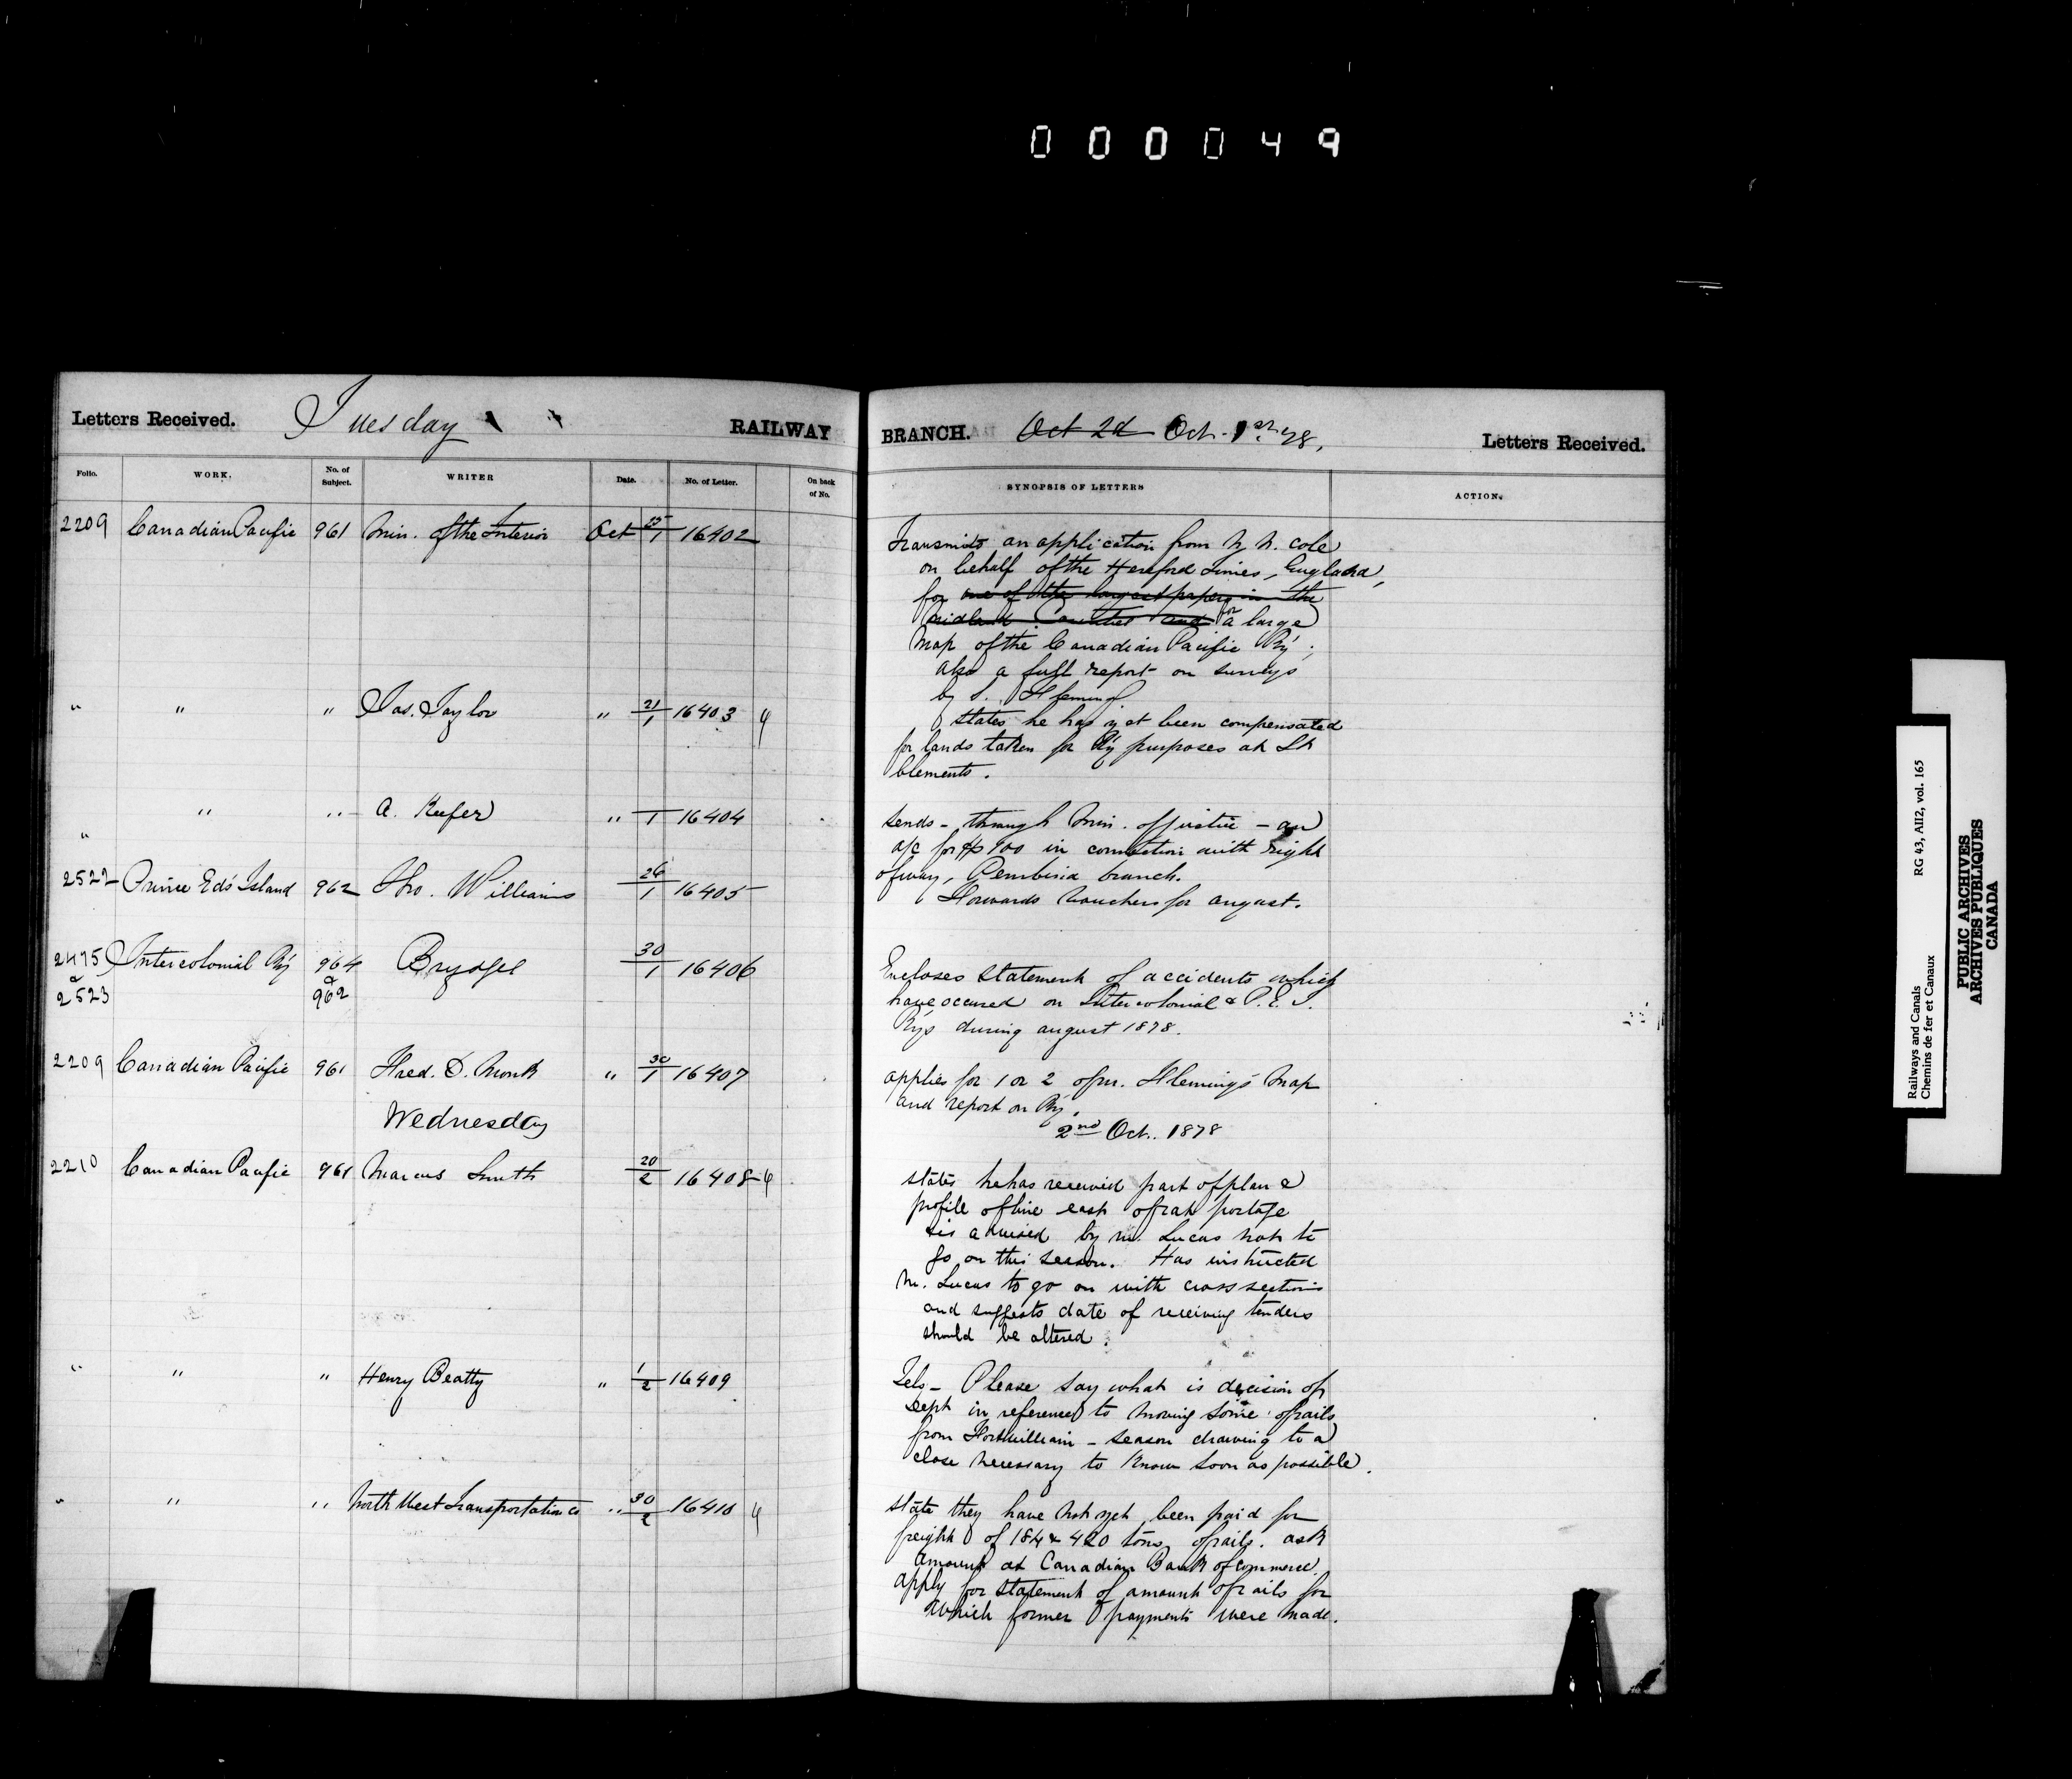 000049
Letters Received. Tuesday RAILWAY
Folio. WORK. No. of Subject. WRITER Date. No. of Letter. On back of No.
2209 Canadian Pacific 961 Min. of the Interior Oct 25/1 16402
" " " Jas. Taylor " 21/1 16403
" " " A. Keefer " 1 16404
2522 Prince Ed's Island 962 Tho. Williams 26/1 16405
2475 Intercolonial Ry 964 Brydges 30/1 16406
& &
2523 962
2209 Canadian Pacific 961 Fred. D. Monk " 30/1 16407
Wednesday
2210 Canadian Pacific 961 Marcus Smith 20/2 16408
" " " Henry Beatty " 1/2 16409
" " " North West Transportation Co " 30/2 16410
BRANCH. Oct 2d Oct. 1st 78, Letters Received.
SYNOPSIS OF LETTERS ACTION.
Transmits an application from N. Cole
on behalf of the Hereford Times, England,
for one of the largest papers in the
midland Counties and for a large
Map of the Canadian Pacific Ry;
also a full report on surveys
by S. Fleming.
States he has yet been compensated
for lands taken for Ry purposes at St
Clements.
Sends - through Min. of Justice - an
a/c for $100 in connection with right
of way, Pembina branch.
Forwards Vouchers for August.
Encloses statement of accidents which
have occured on Intercolonial & P.E.I.
Rys during August 1878.
applies for 1 or 2 of Mr. Fleming's Map
and report on Ry.
2nd Oct. 1878
States he has received part of plan &
profile of line east of rat portage
is advised by Mr. Lucas not to
go on this season. Has instructed
Mr. Lucas to go on with cross sections
and suggests date of receiving tenders
should be altered.
Tely - Please say what is decision of
Dept in reference to moving some of rails
from Fortwilliam - season drawing to a
close necessary to know soon as possible.
State they have not yet been paid for
freight of 184 & 420 tons of rails. ask
amount at Canadian Bank of Commerce.
Apply for statement of amount of rails for
which former payments were made.
Railways and Canals RG 43, AII2, vol. 165
Chemins de fer et Canaux
PUBLIC ARCHIVES
ARCHIVES PUBLIQUES
CANADA